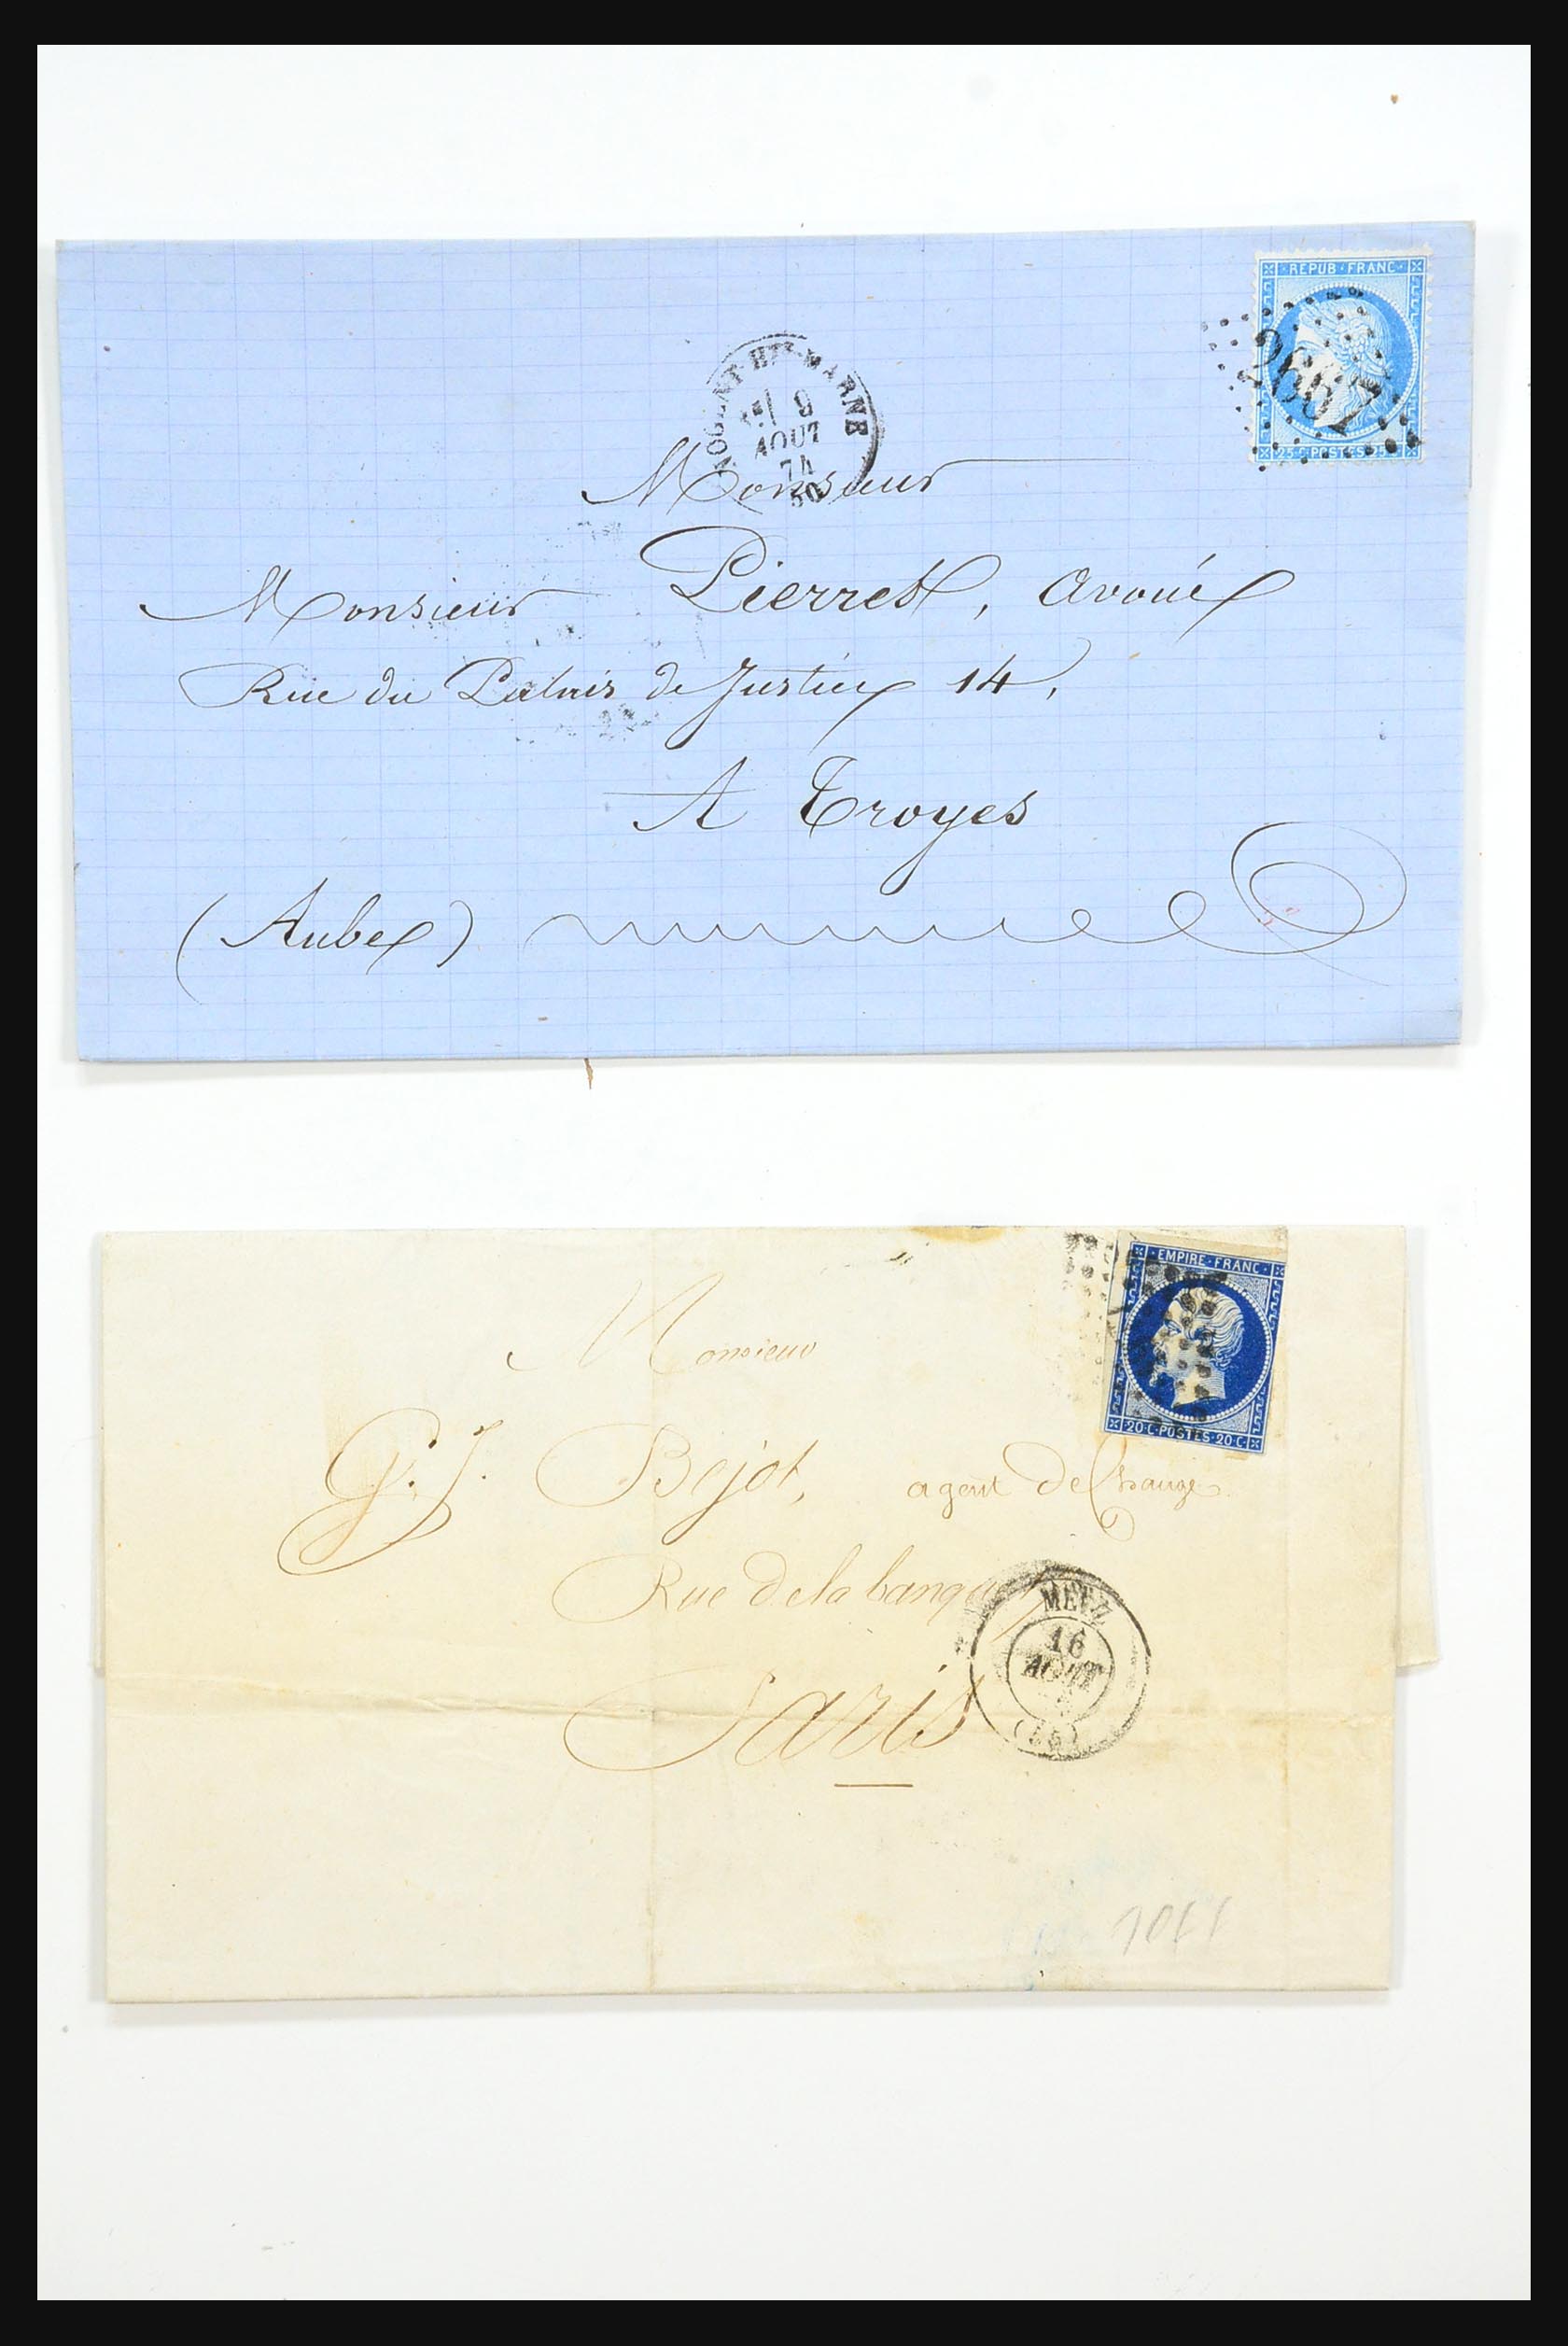 REPUB·FRANC
2667
25 C·POSTES·25 C
NOGENT-HTE-MARNE
9
AOUT
74
50
Monsieur
Monsieur Pierret, avoué
Rue du Palais de Justice 14,
A Troyes
(Aube)
EMPIRE·FRANC
20·C·POSTES·20·C
Monsieur
G. J. Bejot, agent de Change
Rue de la banque
METZ
16
AOUT
Paris